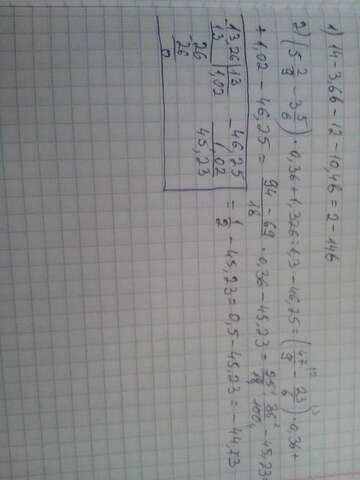 1) 14-3,6b-12-10,4b=2-14b
2) (5 2/9 - 3 5/6) · 0,36+1,326:1,3-46,25=(47/9 ² - 23/6 ³) · 0,36+
+1,02-46,25= 94-69/18 · 0,36-45,23= 25¹/18 · 36²/100₄ -45,23
= 1/2 -45,23=0,5-45,23=-44,73
13,26 | 13
-13 | 1,02
-26
26
0
-46,25
1,02
45,23